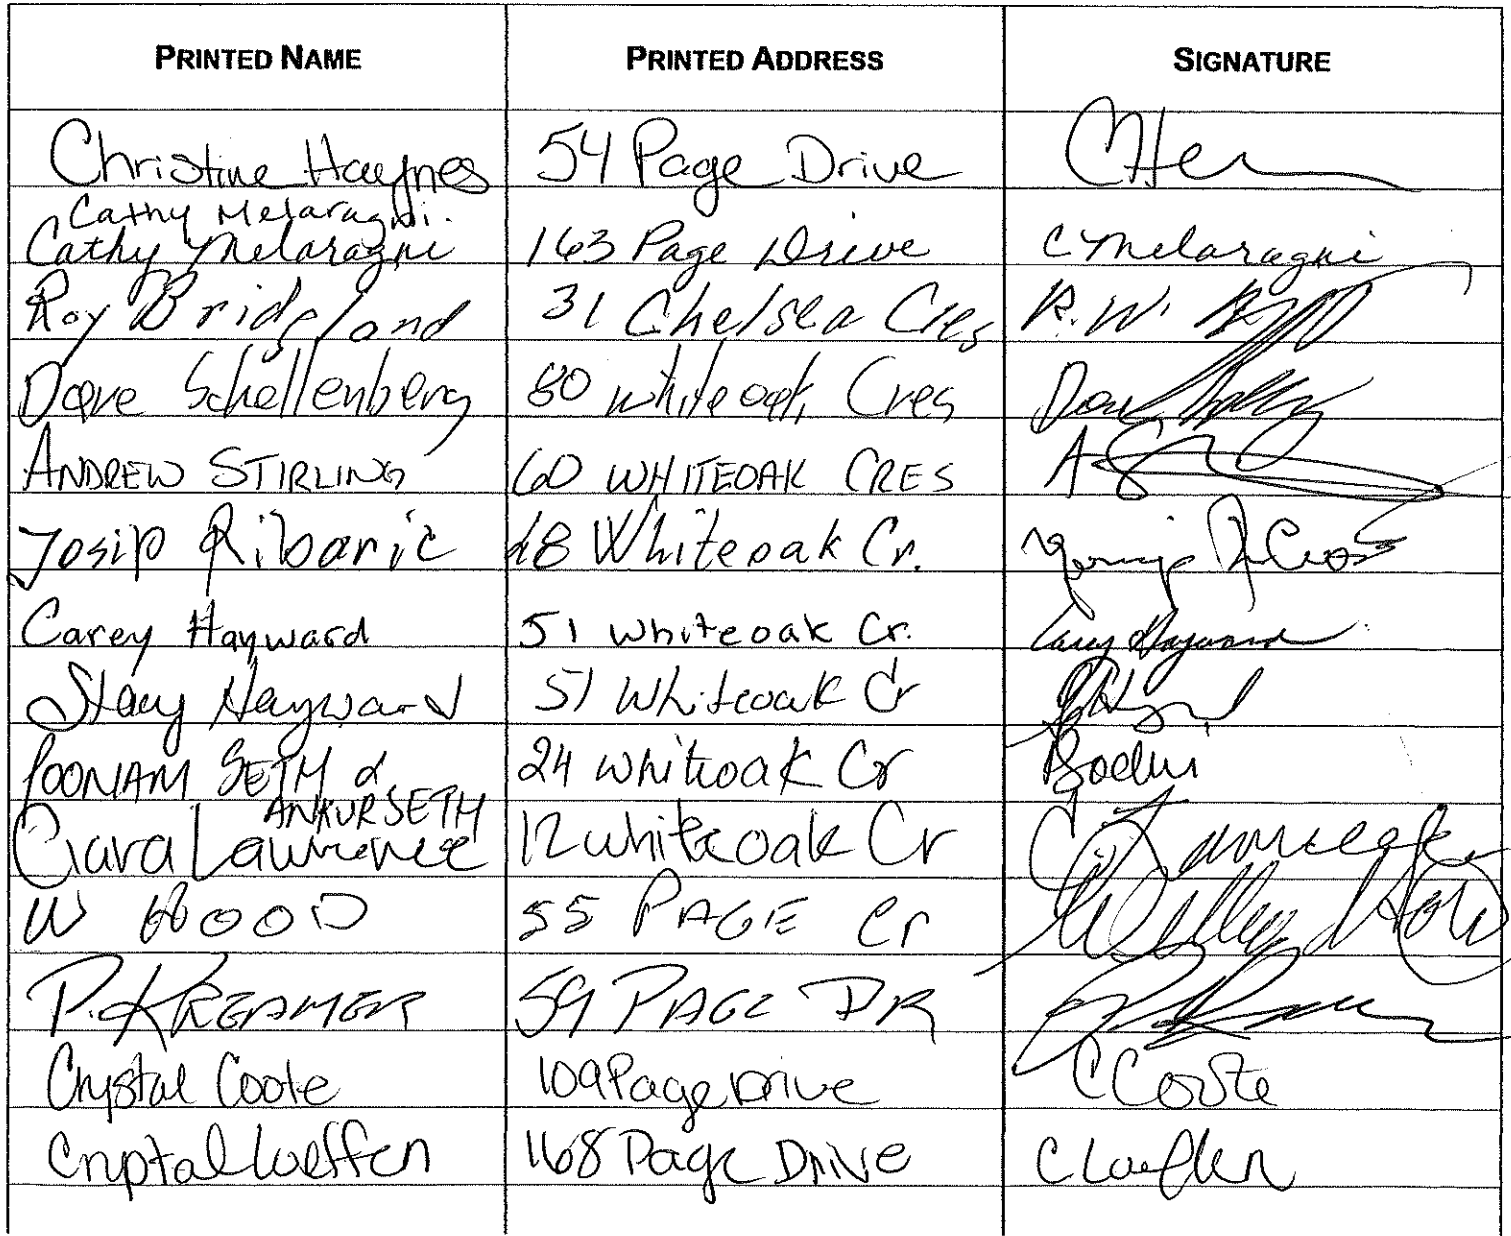 PRINTED NAME PRINTED ADDRESS SIGNATURE
Christine Haynes 54 Page Drive
Cathy Melaragni.
Cathy Melaragni 163 Page Drive C Melaragni
Roy Bridgland 31 Chelsea Cres R.W.
Dave Schellenberg 80 Whiteoak Cres
ANDREW STIRLING 60 WHITEOAK CRES
Josip Ribaric 48 Whiteoak Cr.
Carey Hayward 51 Whiteoak Cr. Carey Hayward
Stacy Hayward 51 Whiteoak Cr
POONAM SETH & 24 Whiteoak Cr
ANKUR SETH
Ciara Lawrence 12 Whiteoak Cr
W HOOD 55 PAGE Cr
P. KREAMER 59 PAGE DR
Crystal Coote 109 Page Drive C Coote
168 Page Drive